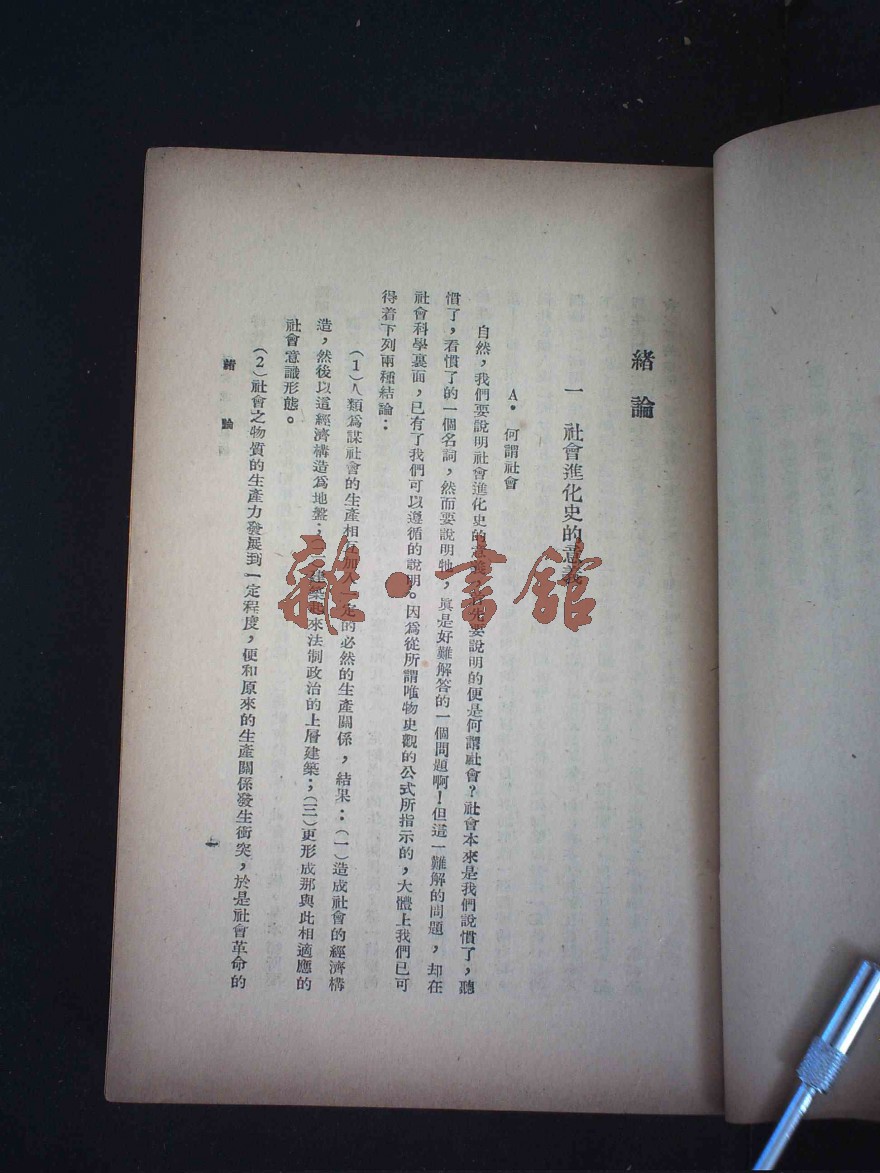 緒論
一 社會進化史的意義
A. 何謂社會
自然，我們要說明社會進化史的意義，首先要說明的便是何謂社會？社會本來是我們說慣了，聽
慣了，看慣了的一個名詞，然而要說明牠，眞是好難解答的一個問題啊！但這一難解的問題，却在
社會科學裏面，已有了我們可以遵循的說明。因爲從所謂唯物史觀的公式所指示的，大體上我們已可
得着下列兩種結論：
（1）人類爲謀社會的生產相互加入一定的必然的生產關係，結果：（一）造成社會的經濟構
造，然後以這經濟構造爲地盤；（二）建築起來法制政治的上層建築；（三）更形成那與此相適應的
社會意識形態。
（2）社會之物質的生產力發展到一定程度，便和原來的生產關係發生衝突，於是社會革命的
緒論
一
雜·書館